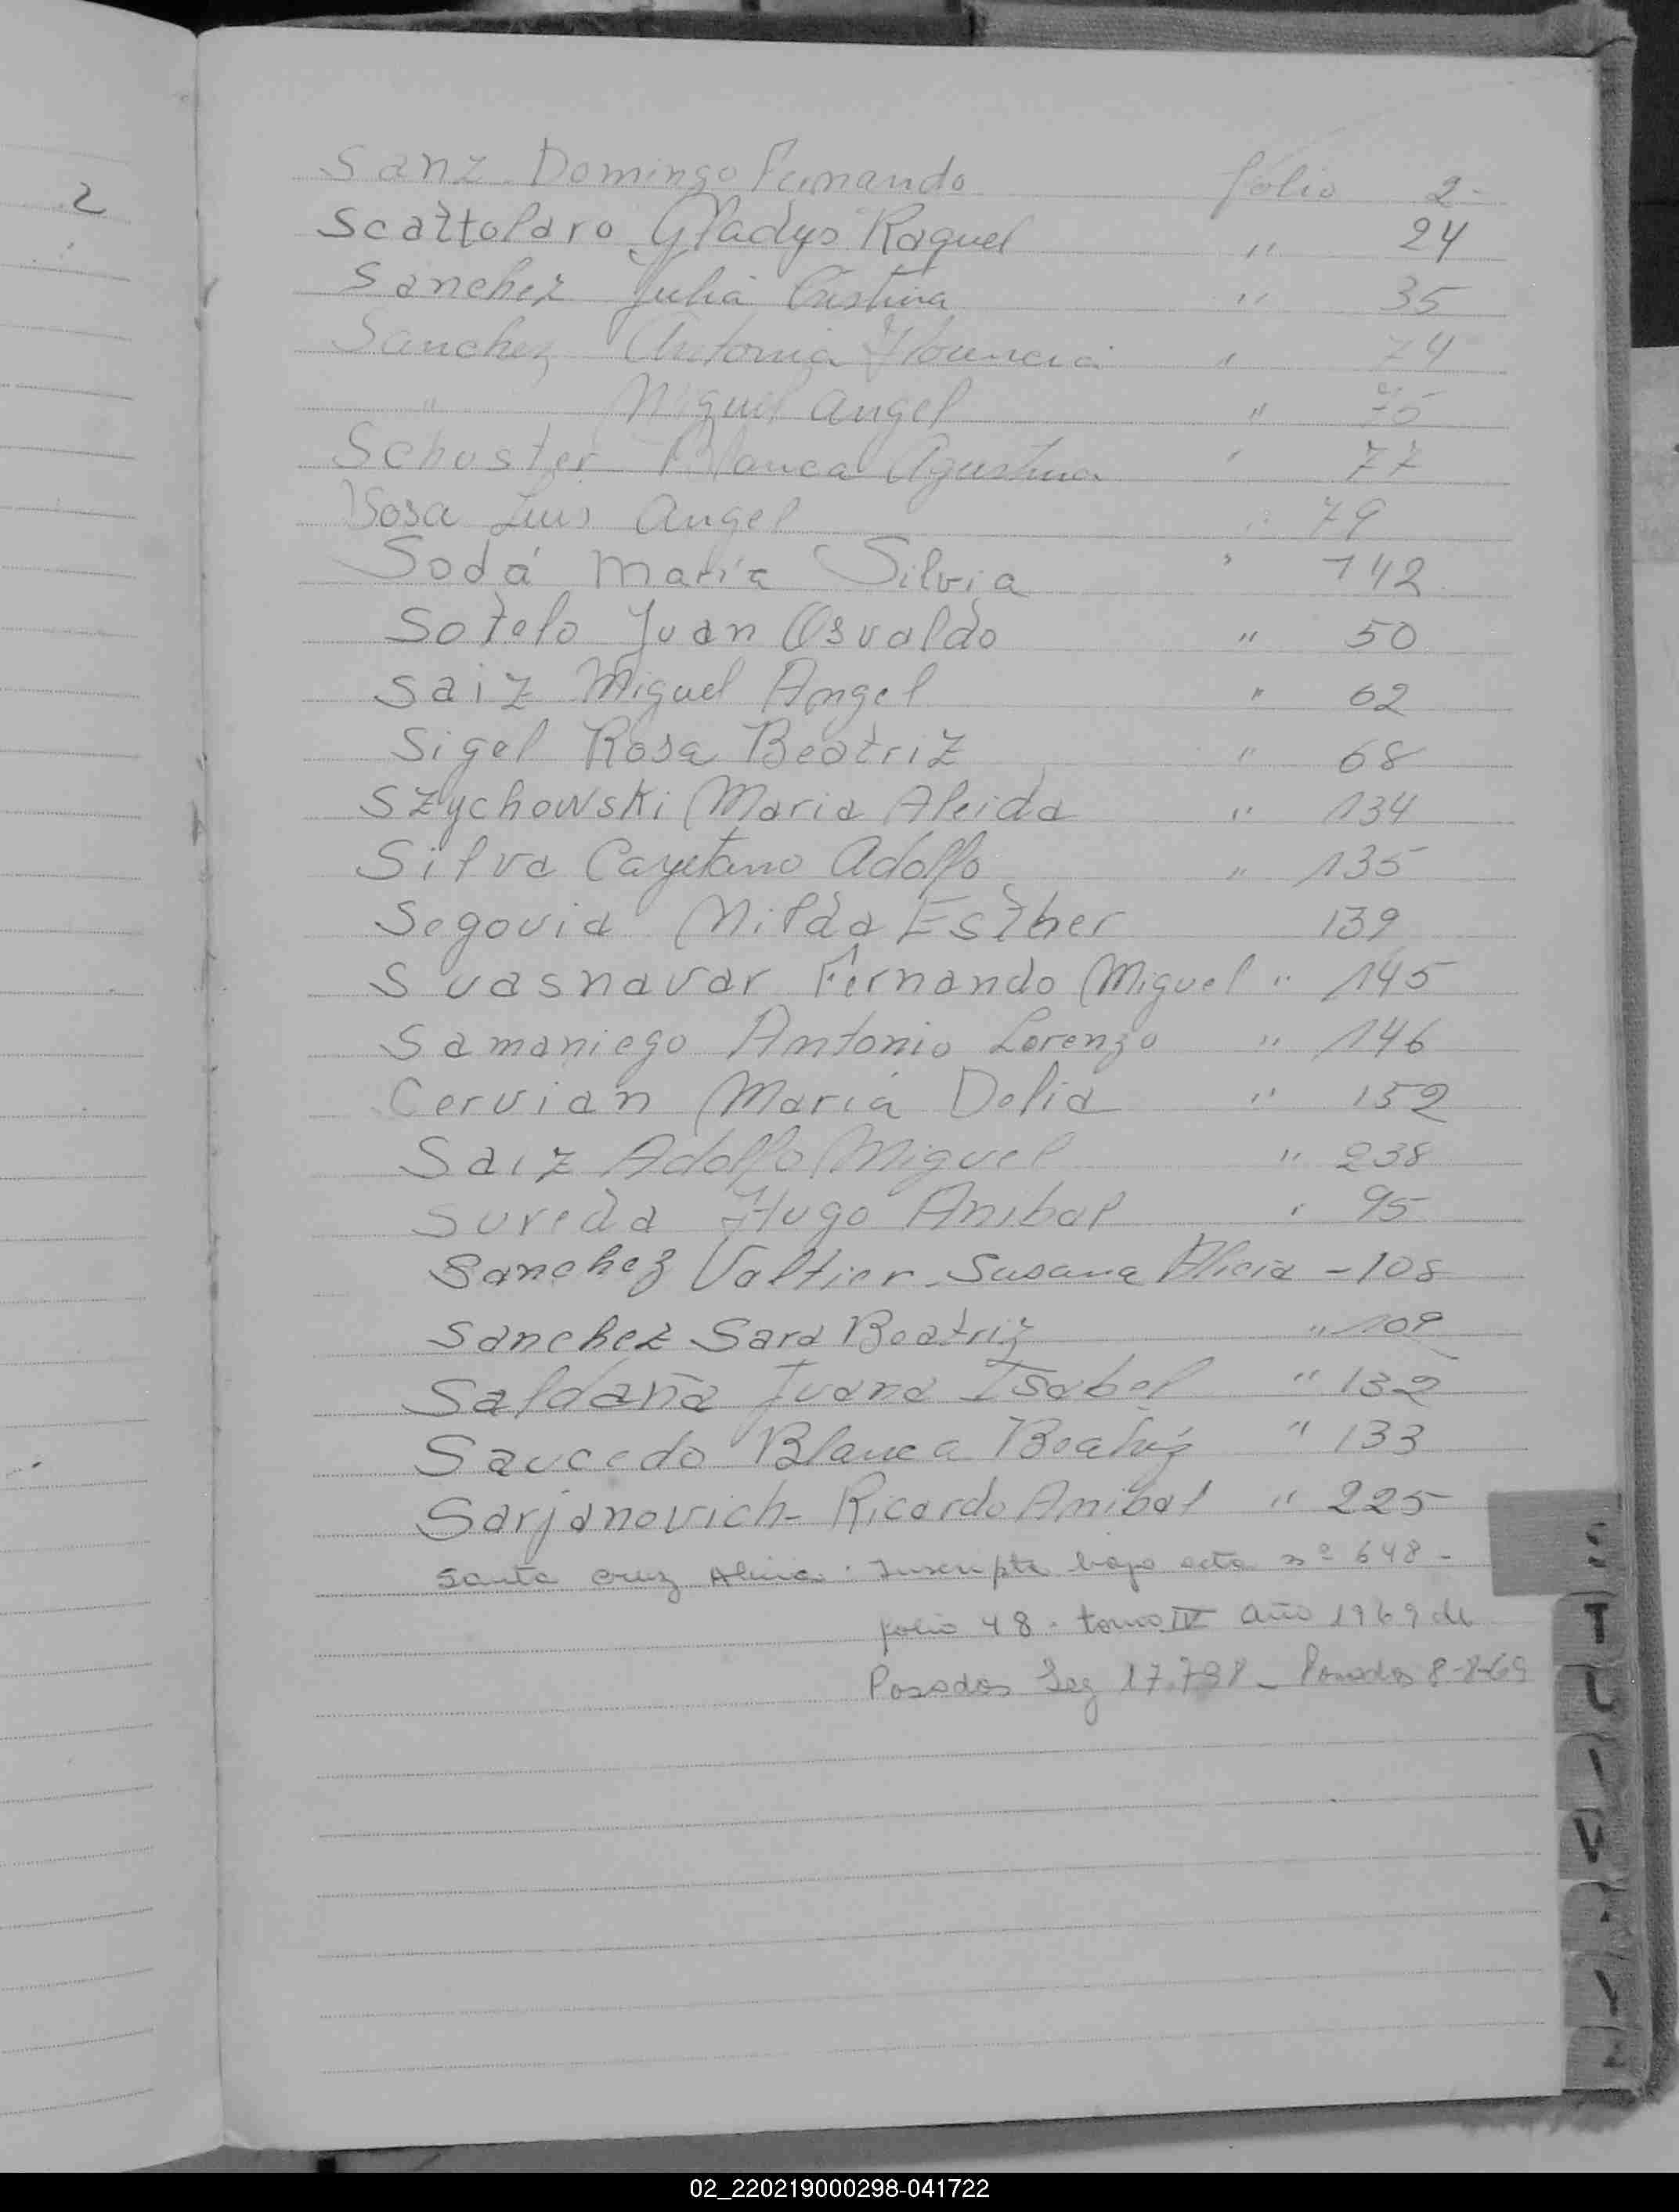 2
Sanz Domingo Fernando folio 2-
Scattolaro Gladys Raquel " 24
Sanchez Julia Cristina " 35
Sanchez Antonia Florencia " 74
" Miguel Angel " 75
Schuster Blanca Agustina " 77
Sosa Luis Angel " 79
Sodá María Silvia " 142
Sotelo Juan Osvaldo " 50
Saiz Miguel Angel " 62
Sigel Rosa Beatriz " 68
Szychowski Maria Aleida " 134
Silva Cayetano Adolfo " 135
Segovia Nilda Esther 139
Suasnavar Fernando Miguel " 145
Samaniego Antonio Lorenzo " 146
Cervian María Delia " 152
Saiz Adolfo Miguel " 238
Sureda Hugo Anibal " 95
Sanchez Valtier Susana Alicia - 108
Sanchez Sara Beatriz " 109
Saldaña Juana Isabel " 132
Saucedo Blanca Beatriz " 133
Sarjanovich - Ricardo Anibal " 225
Santa Cruz Alicia. Inscripta bajo acta nº 648 -
folio 48. tomo IV año 1969 de
Posadas Leg 17.798 - Posadas 8-8-69
T
V
02_220219000298-041722